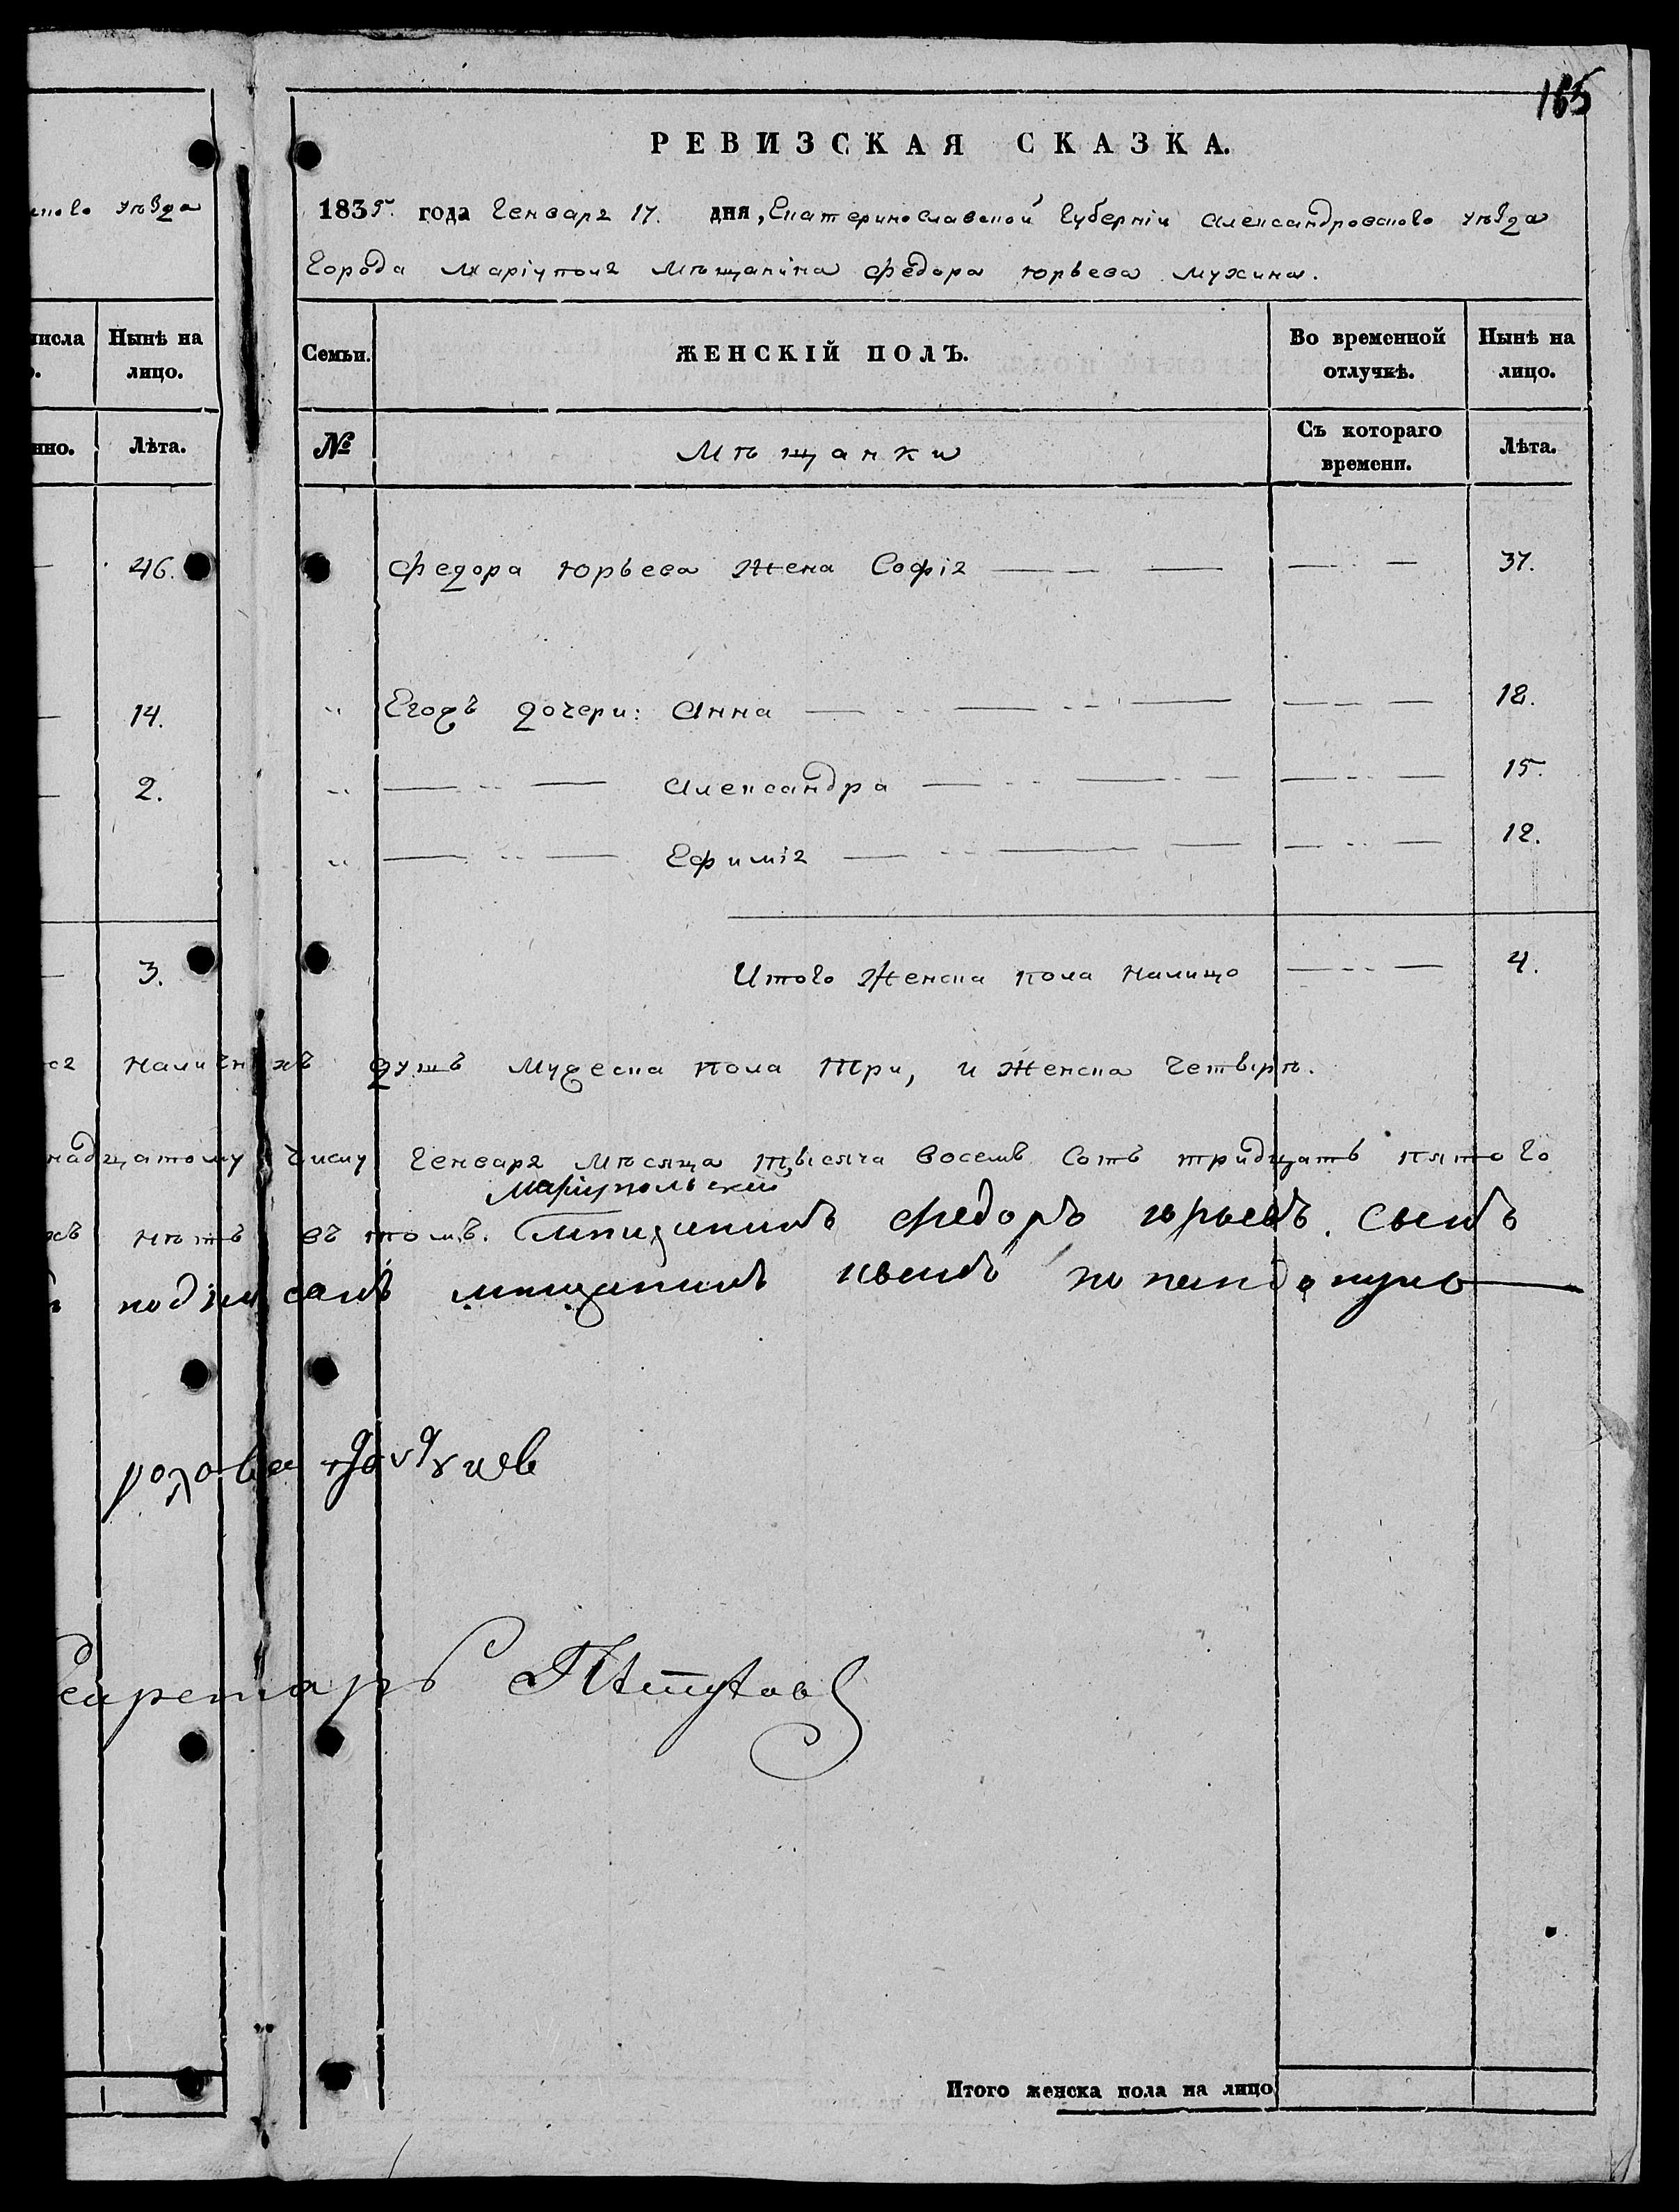 165
РЕВИЗСКАЯ СКАЗКА.
1835. года Генваря 17. дня, Екатеринославской Губерніи Александровского уѣзда
Города Маріуполя Мѣщанина Федора Юрьева Мухина.
уѣзда
числа
Ныиѣ на лицо.
Лѣта.
46.
14.
2.
3.
Семьи.
ЖЕНСКІЙ ПОЛЪ.
Во временной отлучкѣ.
Нынѣ на лицо.
№
Мѣщанки
Съ котораго времени.
Лѣта.
Федора Юрьева Жена Софія 37.
Егожъ дочери: Анна 18.
Александра 15.
Ефимія 12.
Итого Женска пола налицо 4.
наличнхъ душъ Мужеска пола три, и Женска Четверѣ.
надцатому числу Генваря Мѣсяца тысяча восемь Сотъ тридцать пятого
Маріупольскій
нѣтъ въ томъ. мѣщанинъ Федоръ юрьевъ сынъ
подписалъ мѣщанинъ
Секретарь
Итого женска пола на лицо